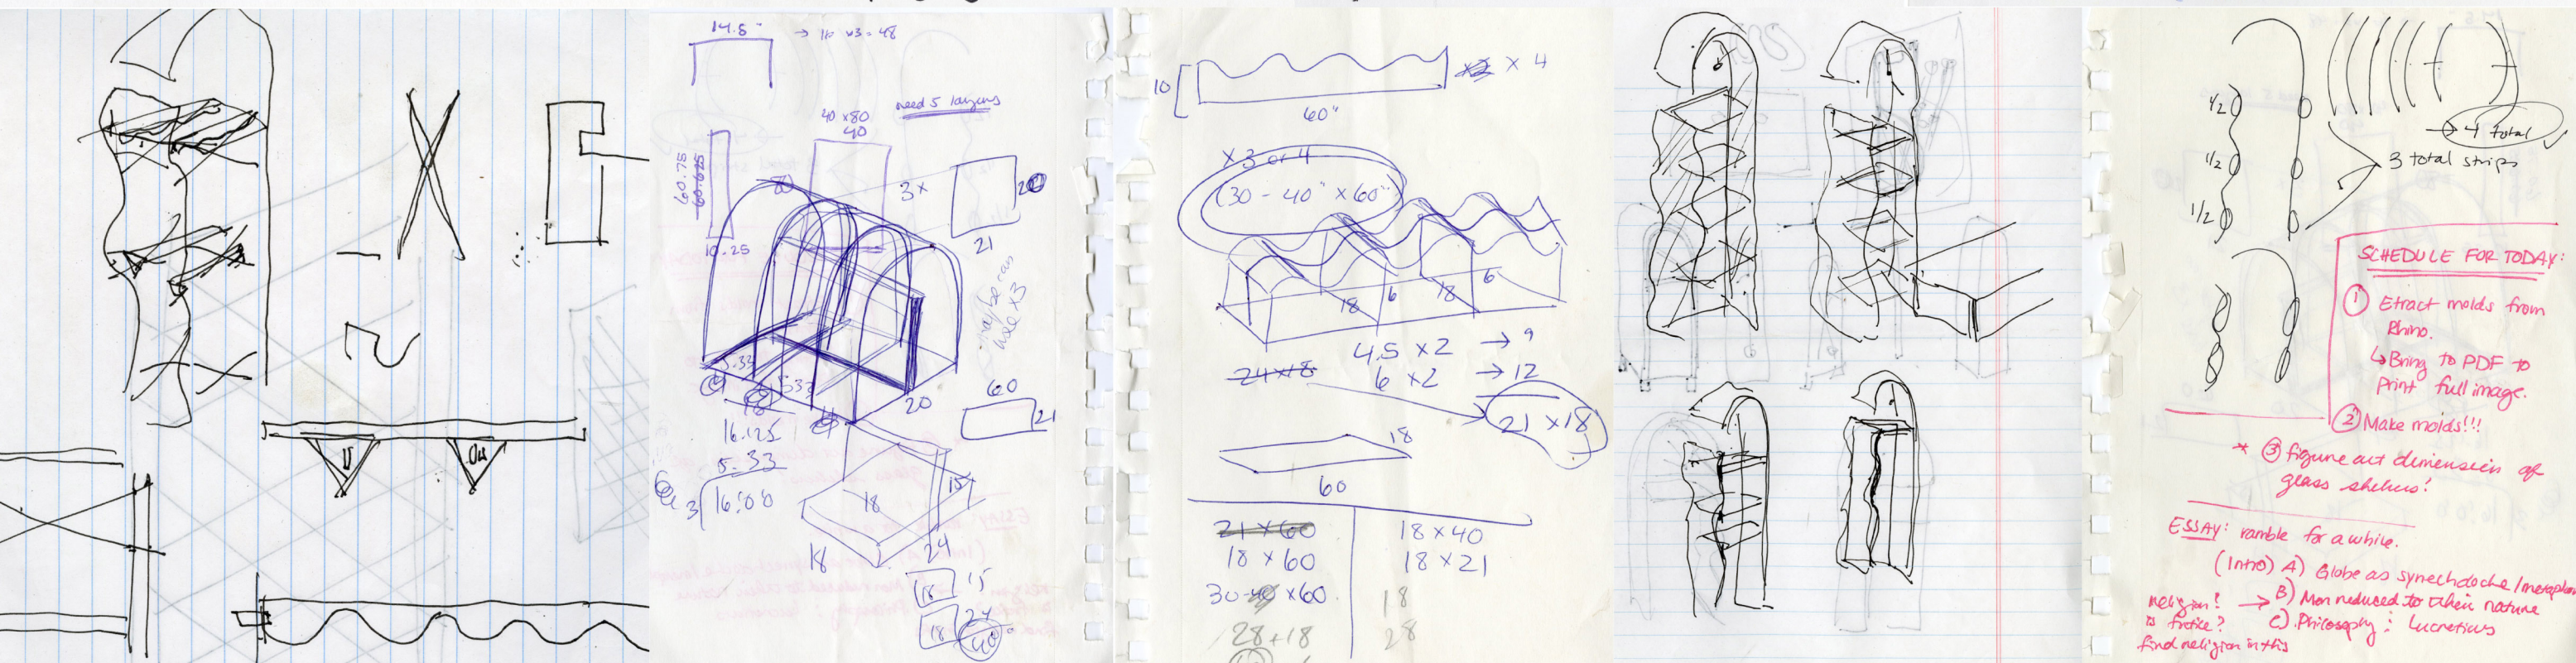 14.5"
→ 16 x3 = 48
need 5 layers
40 x80
40
60.75
60.625
10.25
3x
20
21
maybe can
use x3
5.33
5.33
18
16.125
20
60
21
5.33
3
16.00
18
15
18
24
18
15
18
24
40
10
x 4
60"
x 3 or 4
(30 - 40" x 60")
18
6
18
6
4.5 x 2 → 9
24 x 18
6 x 2 → 12
21 x 18
18
60
21 x 60
18 x 60
30-40 x 60
28 + 18
18 x 40
18 x 21
18
28
1/2
1/2
1/2
→ 4 total
3 total strips
SCHEDULE FOR TODAY:
① Etract molds from
Rhino.
↳ Bring to PDF to
print full image.
② Make molds!!!
* ③ figure out dimension of
glass shelves!
ESSAY: ramble for a while.
(Intro) A) Globe as synechdoche/metaphor
→ B) Man reduced to their nature
C) Philosophy: Lucretius
religion!
is justice?
find religion in this